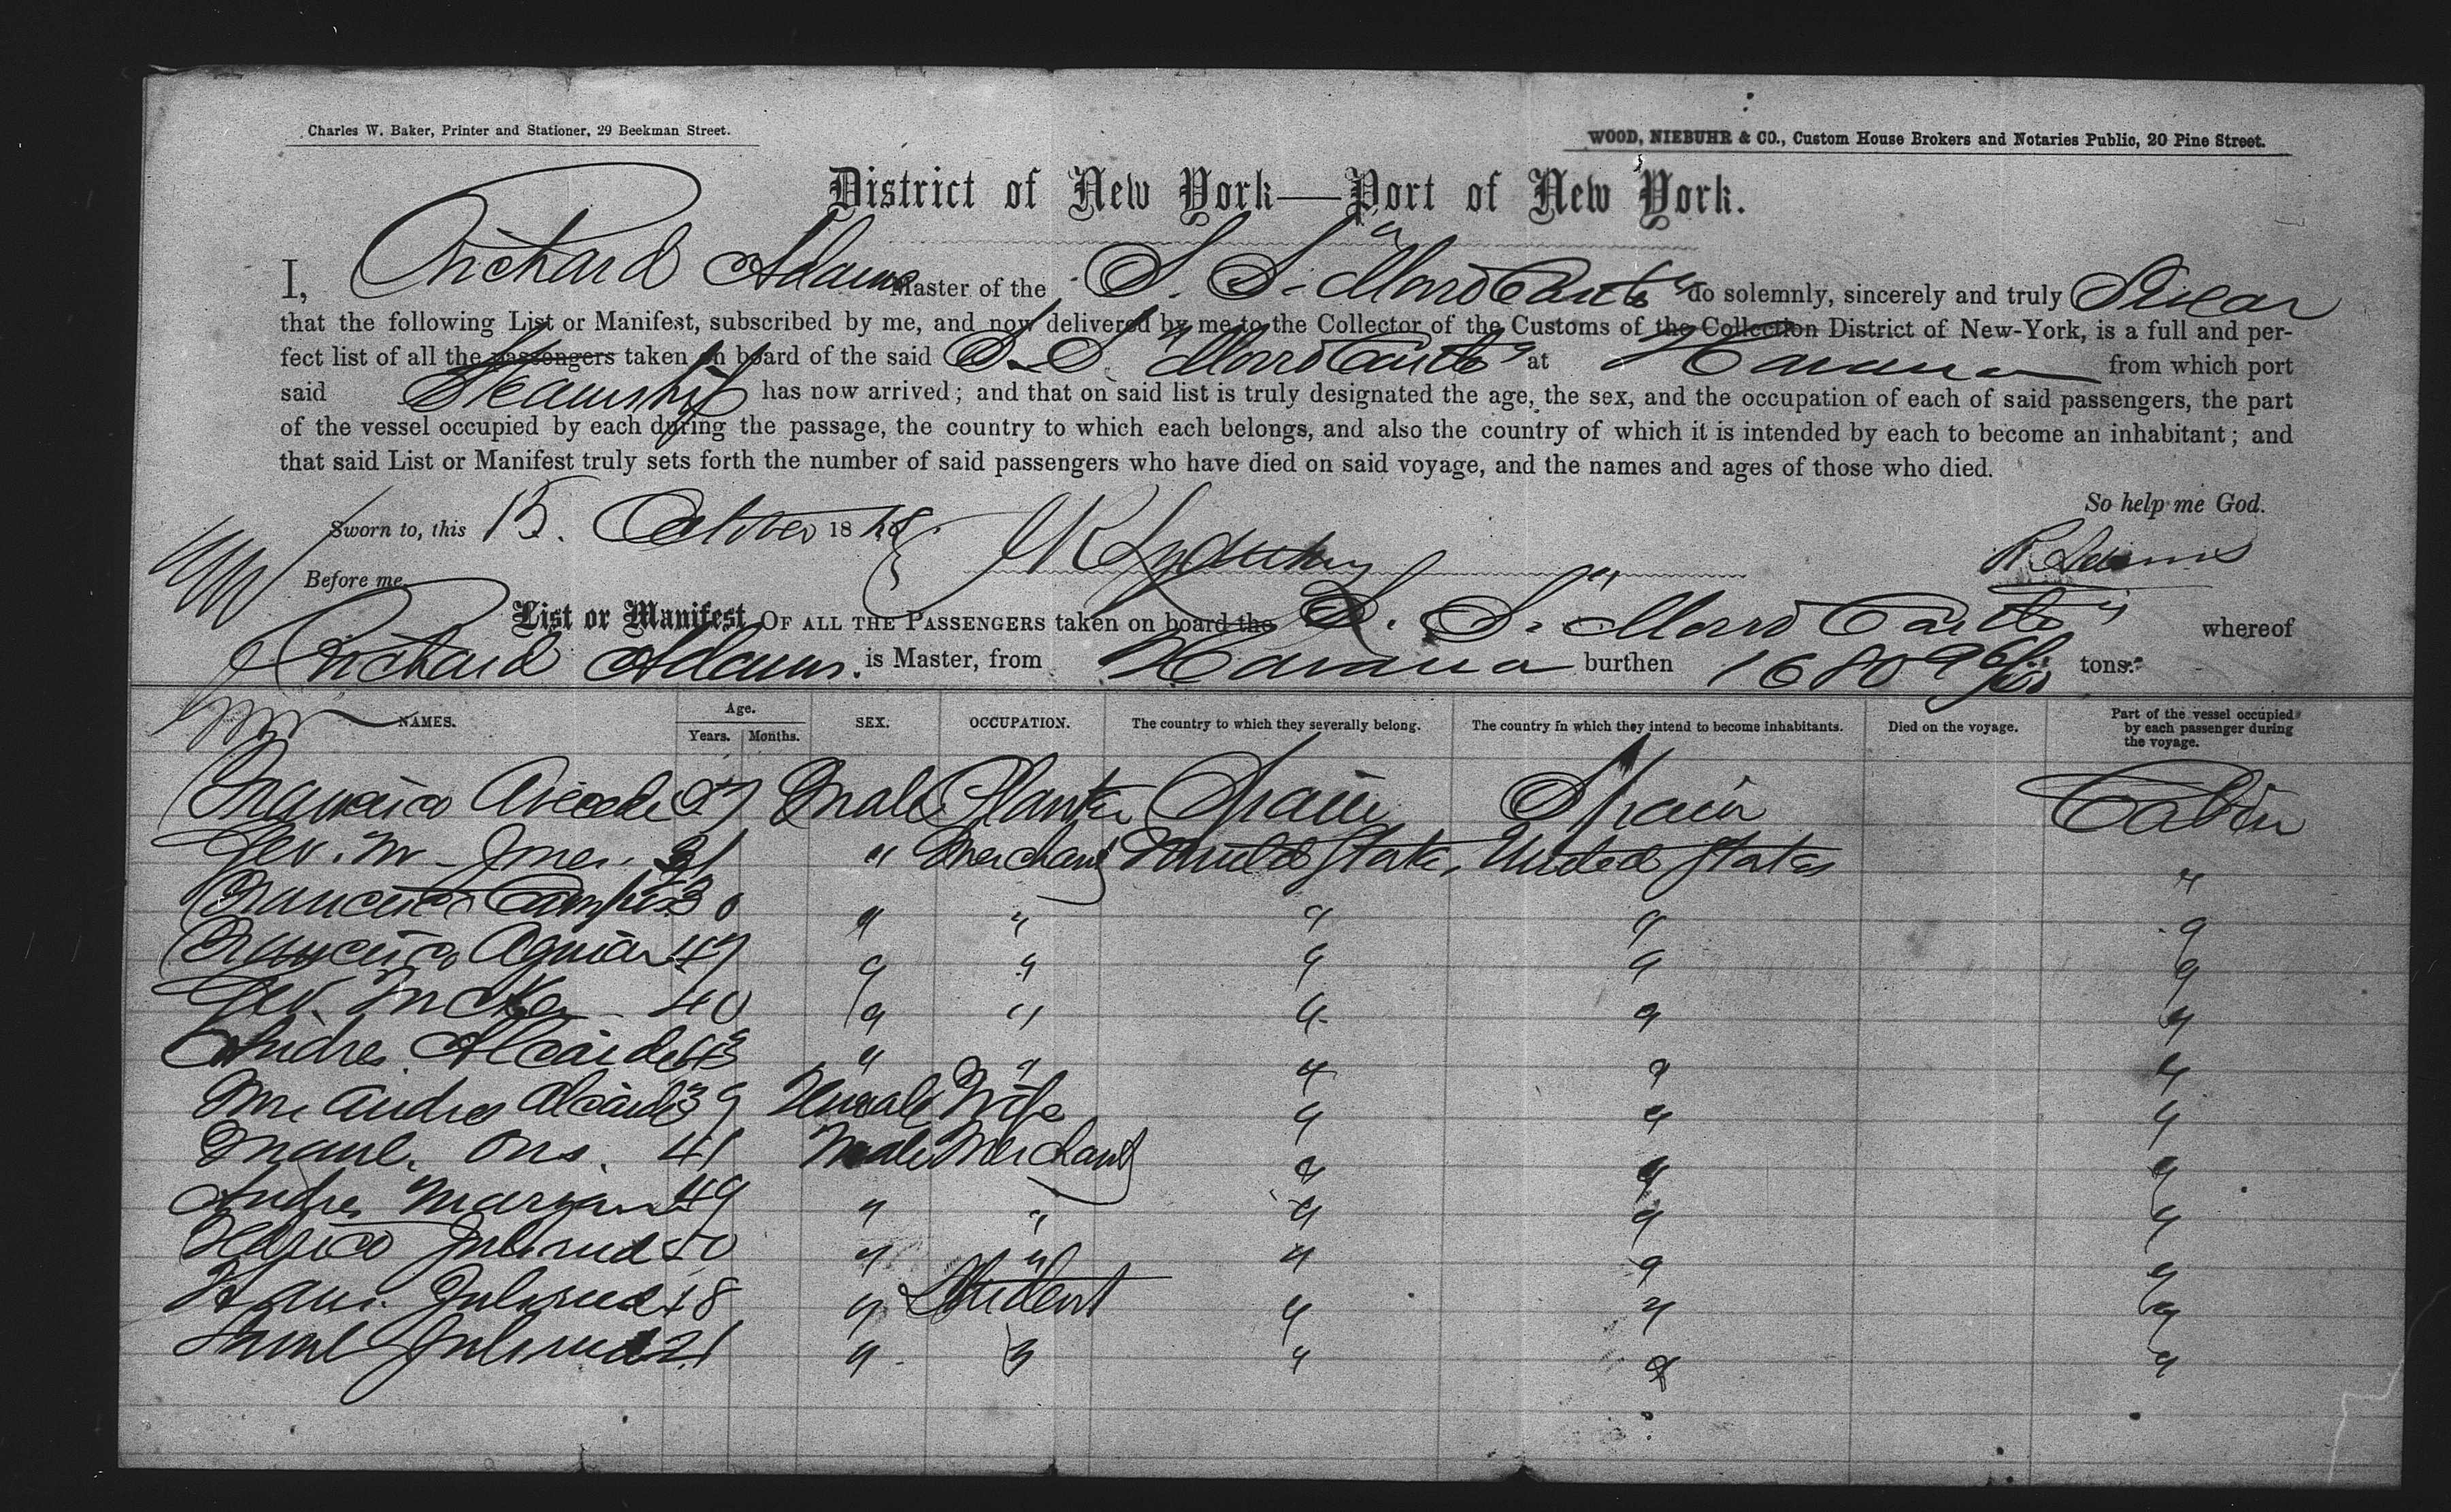 Charles W. Baker, Printer and Stationer, 29 Beekman Street.
WOOD, NIEBUHR & CO., Custom House Brokers and Notaries Public, 20 Pine Street.
District of New York—Port of New York.
I, Richard Adams Master of the S. S. "Morro Castle" do solemnly, sincerely and truly Swear
that the following List or Manifest, subscribed by me, and now delivered by me to the Collector of the Customs of the Collection District of New-York, is a full and per-
fect list of all the passengers taken on board of the said S. S. "Morro Castle" at Havana from which port
said Steamship has now arrived; and that on said list is truly designated the age, the sex, and the occupation of each of said passengers, the part
of the vessel occupied by each during the passage, the country to which each belongs, and also the country of which it is intended by each to become an inhabitant; and
that said List or Manifest truly sets forth the number of said passengers who have died on said voyage, and the names and ages of those who died.
So help me God.
Sworn to, this 15. October 1868.
R Adams
Before me,
List or Manifest OF ALL THE PASSENGERS taken on board the S. S. "Morro Castle" whereof
Richard Adams. is Master, from Havana burthen 1680 tons.
NAMES. Age. Years. Months. SEX. OCCUPATION. The country to which they severally belong. The country in which they intend to become inhabitants. Died on the voyage. Part of the vessel occupied by each passenger during the voyage.
Francisco 27 Male Planter Spain Spain Cabin
Geo. M. Jones. 31 " Merchant United States, United States "
Francisco Campos 30 " " " " "
Francisco Aguiar 47 " " " " "
Geo. 40 " " " " "
Andres Alcaide 43 " " " " "
Mrs Andres Alcaide 39 Female Wife " " "
Manl. Ons. 41 Male Merchant " " "
Andres 49 " " " " "
50 " " " " "
18 " Student " " "
Manl 21 " " " " "